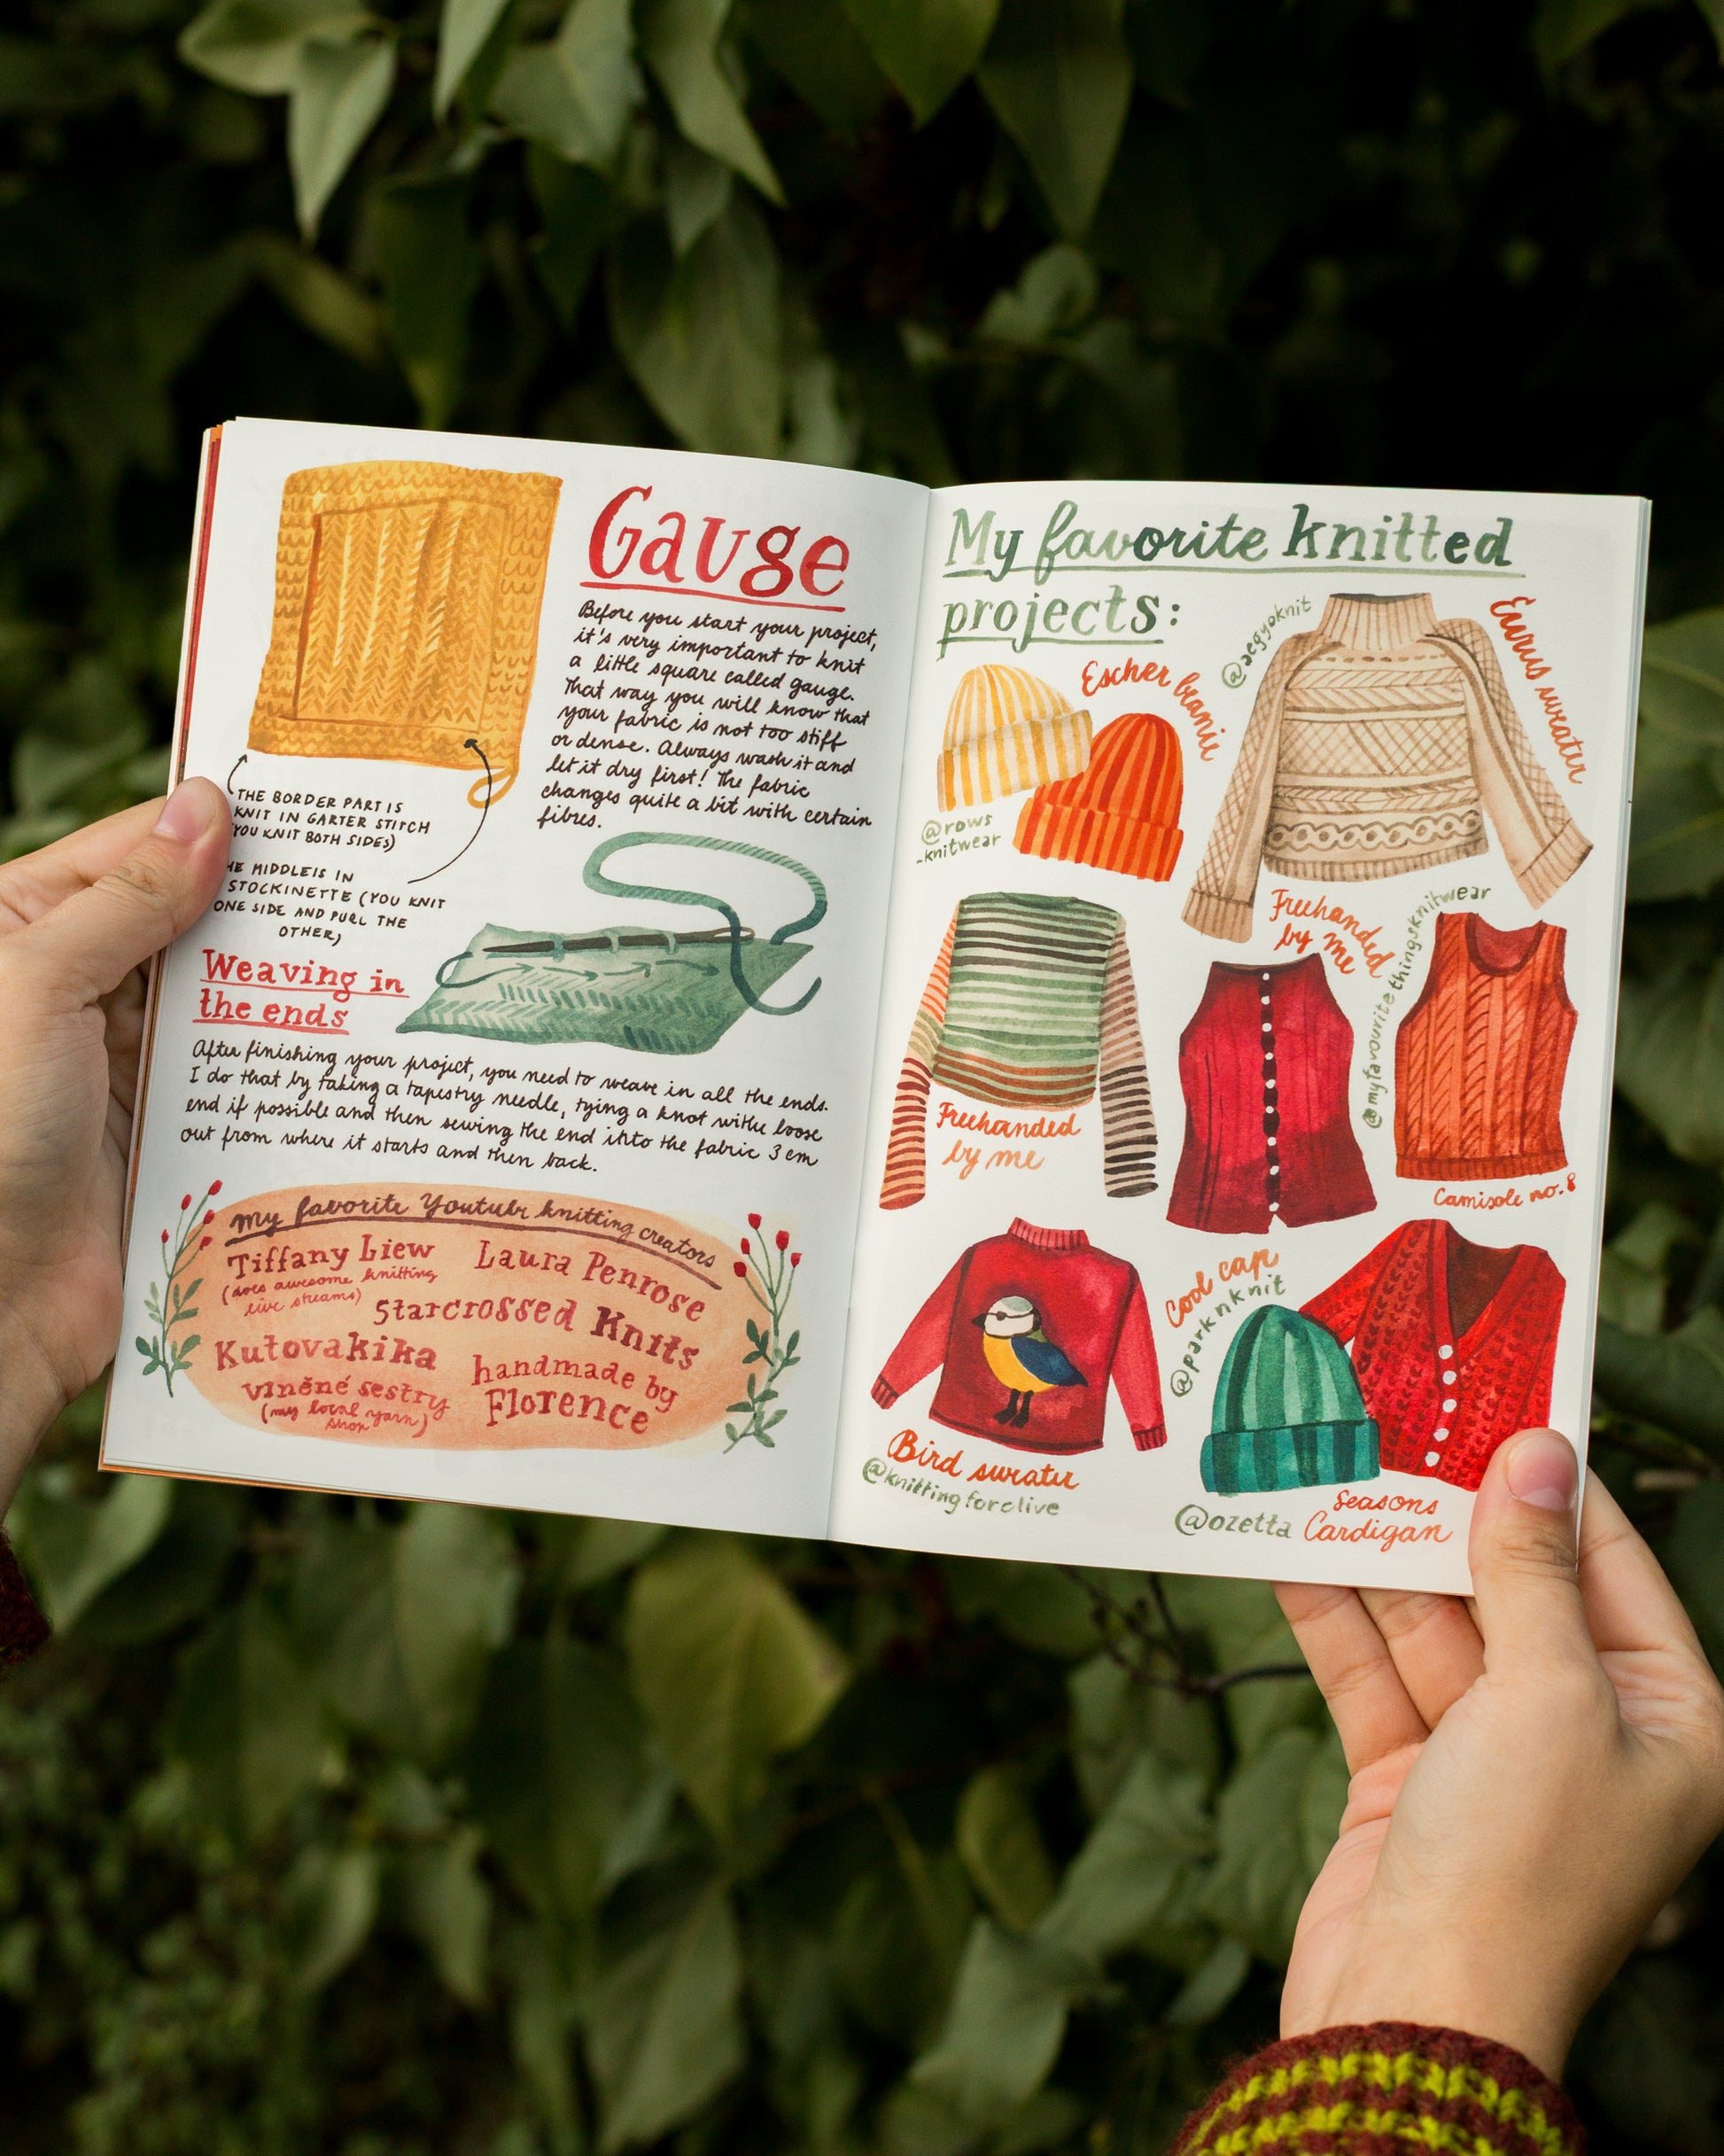 Gauge
Before you start your project,
it's very important to knit
a little square called gauge.
That way you will know that
your fabric is not too stiff
or dense. Always wash it and
let it dry first! The fabric
changes quite a bit with certain
fibres.
THE BORDER PART IS
KNIT IN GARTER STITCH
(YOU KNIT BOTH SIDES)
HE MIDDLE IS IN
STOCKINETTE (YOU KNIT
ONE SIDE AND PURL THE
OTHER)
Weaving in
the ends
After finishing your project, you need to weave in all the ends.
I do that by taking a tapestry needle, tying a knot withe loose
end if possible and then sewing the end into the fabric 3 cm
out from where it starts and then back.
My favorite Youtube knitting creators
Tiffany Liew
(does awesome knitting
live streams)
Laura Penrose
Starcrossed Knits
Kutovakika
handmade by
Florence
vlněné sestry
(my local yarn
shop)
My favorite knitted
projects:
@aegyoknit
Escher beanie
@rows
-knitwear
Freehanded
by me
@myfavouritethingsknitwear
Freehanded
by me
Camisole no.8
Bird sweater
@knittingforolive
Cool cap
@parknknit
@ozetta
seasons
Cardigan